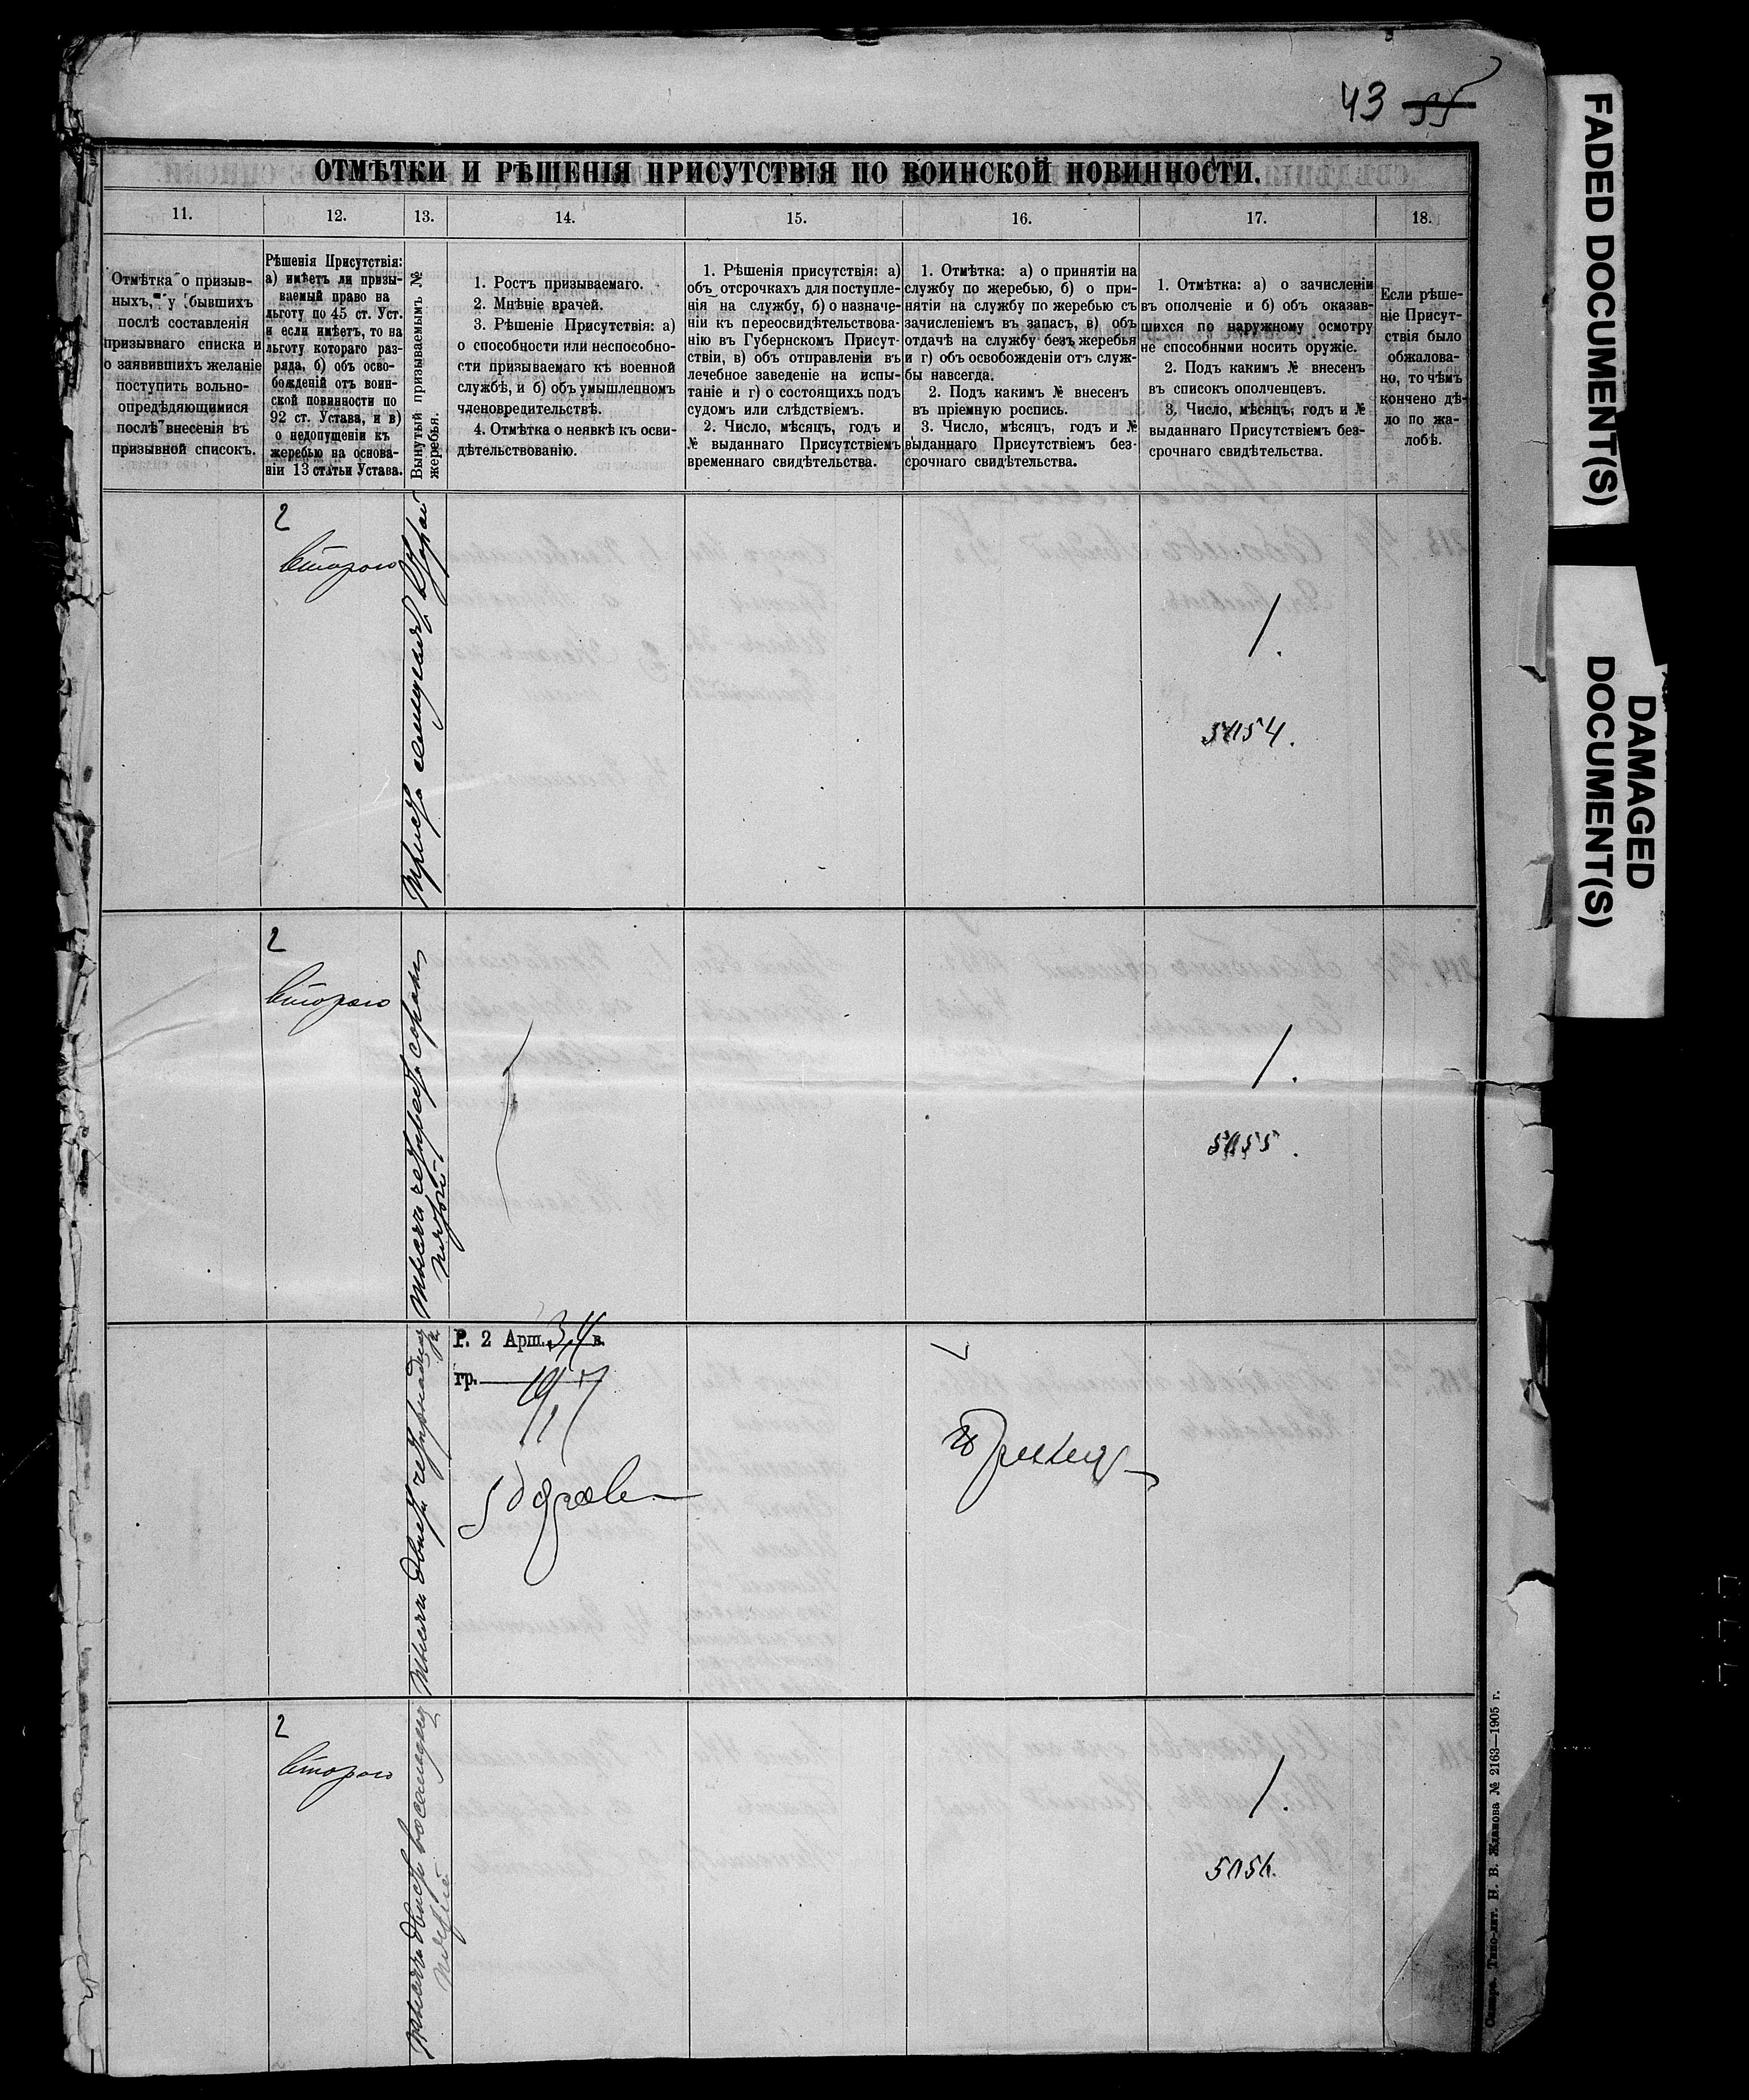 43 55
ОТМѢТКИ И РѢШЕНІЯ ПРИСУТСТВІЯ ПО ВОИНСКОЙ ПОВИННОСТИ.
11.
12.
13.
14.
15.
16.
17.
18.
Отмѣтка о призыв-
ныхъ, у бывшихъ
послѣ составленія
призывнаго списка и
о заявившихъ желаніе
поступить вольно-
опредѣляющимися
послѣ внесенія въ
призывной списокъ.
Рѣшенія Присутствія:
а) имѣетъ ли призы-
ваемый право на
льготу по 45 ст. Уст.
и если имѣетъ, то на
льготу котораго раз-
ряда, б) объ осво-
божденій отъ воин-
ской повинности по
92 ст. Устава, и в)
о недопущеніи къ
жеребью на основа-
ніи 13 статьи Устава.
Вынутый призываемымъ №
жеребья.
1. Ростъ призываемаго.
2. Мнѣніе врачей.
3. Рѣшеніе Присутствія: а)
о способности или неспособно-
сти призываемаго къ военной
службѣ, и б) объ умышленномъ
членовредительствѣ.
4. Отмѣтка о неявкѣ къ осви-
дѣтельствованію.
1. Рѣшенія присутствія: а)
объ отсрочкахъ для поступле-
нія на службу, б) о назначе-
ніи къ переосвидѣтельствова-
нію въ Губернскомъ Присут-
ствіи, в) объ отправленіи въ
лечебное заведеніе на испы-
таніе и г) о состоящихъ подъ
судомъ или слѣдствіемъ.
2. Число, мѣсяцъ, годъ и
№ выданнаго Присутствіемъ
временнаго свидѣтельства.
1. Отмѣтка: а) о принятіи на
службу по жеребью, б) о при-
нятіи на службу по жеребью съ
зачисленіемъ въ запасъ, в) объ
отдачѣ на службу безъ жеребья
и г) объ освобожденіи отъ служ-
бы навсегда.
2. Подъ какимъ № внесенъ
въ пріемную роспись.
3. Число, мѣсяцъ, годъ и №
выданнаго Присутствіемъ без-
срочнаго свидѣтельства.
1. Отмѣтка: а) о зачисленіи
въ ополченіе и б) объ оказав-
шихся по наружному осмотру
не способными носить оружіе.
2. Подъ какимъ № внесенъ
въ списокъ ополченцевъ.
3. Число, мѣсяцъ, годъ и №
выданнаго Присутствіемъ без-
срочнаго свидѣтельства.
Если рѣше-
ніе Присут-
ствія было
обжалова-
но, то чѣмъ
кончено дѣ-
ло по жа-
лобѣ.
2
второго
триста семидесят второй
1.
2
второго
тысяча четыреста сорок
пятый
1.
5055.
тысяча двести четырнадца
Р. 2 Арш. 3 4/8 в.
гр.
Здоров
Принят
2
второго
тысяча двести восемдесят
1.
5056.
Самара. Типо-лит. Н. В. Жданова № 2163—1905 г.
FADED DOCUMENT(S)
DAMAGED
DOCUMENT(S)